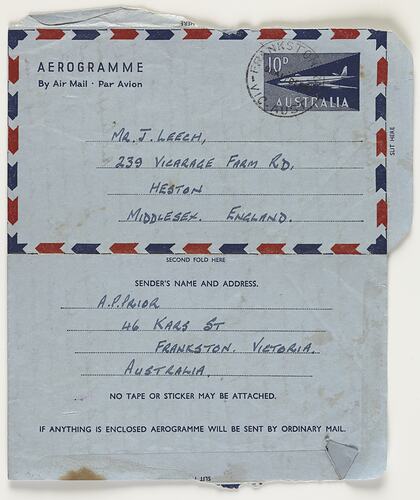 HERE
AEROGRAMME
By Air Mail · Par Avion
FRANKSTON
VIC-AUST
10D
AUSTRALIA
SLIT HERE
MR. J. LEECH,
239 VICARAGE FARM RD,
HESTON
MIDDLESEX. ENGLAND.
SECOND FOLD HERE
SENDER'S NAME AND ADDRESS.
A.P. PRIOR
46 KARS ST
FRANKSTON. VICTORIA.
AUSTRALIA.
NO TAPE OR STICKER MAY BE ATTACHED.
IF ANYTHING IS ENCLOSED AEROGRAMME WILL BE SENT BY ORDINARY MAIL.
SLIT